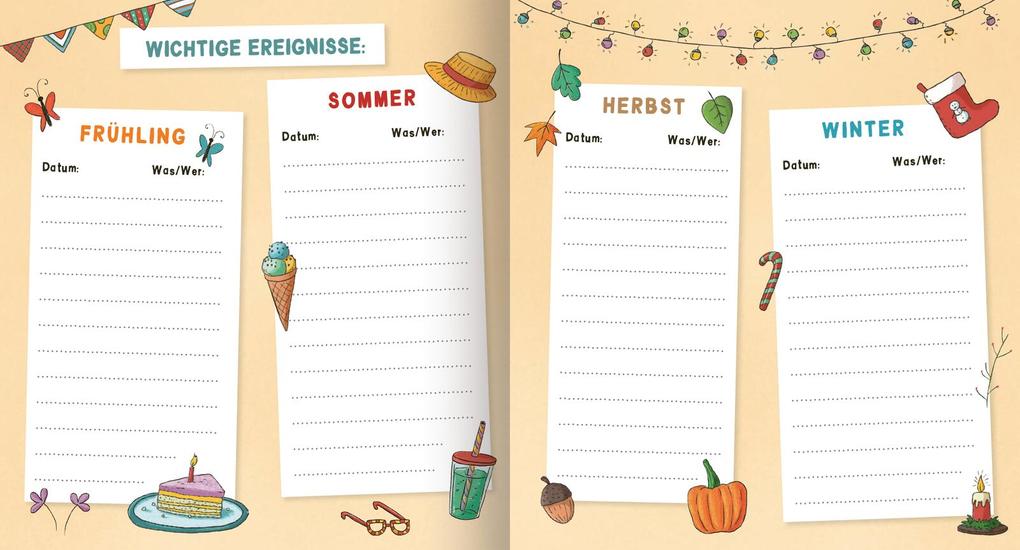 WICHTIGE EREIGNISSE:
FRÜHLING
Datum: Was/Wer:
SOMMER
Datum: Was/Wer:
HERBST
Datum: Was/Wer:
WINTER
Datum: Was/Wer: